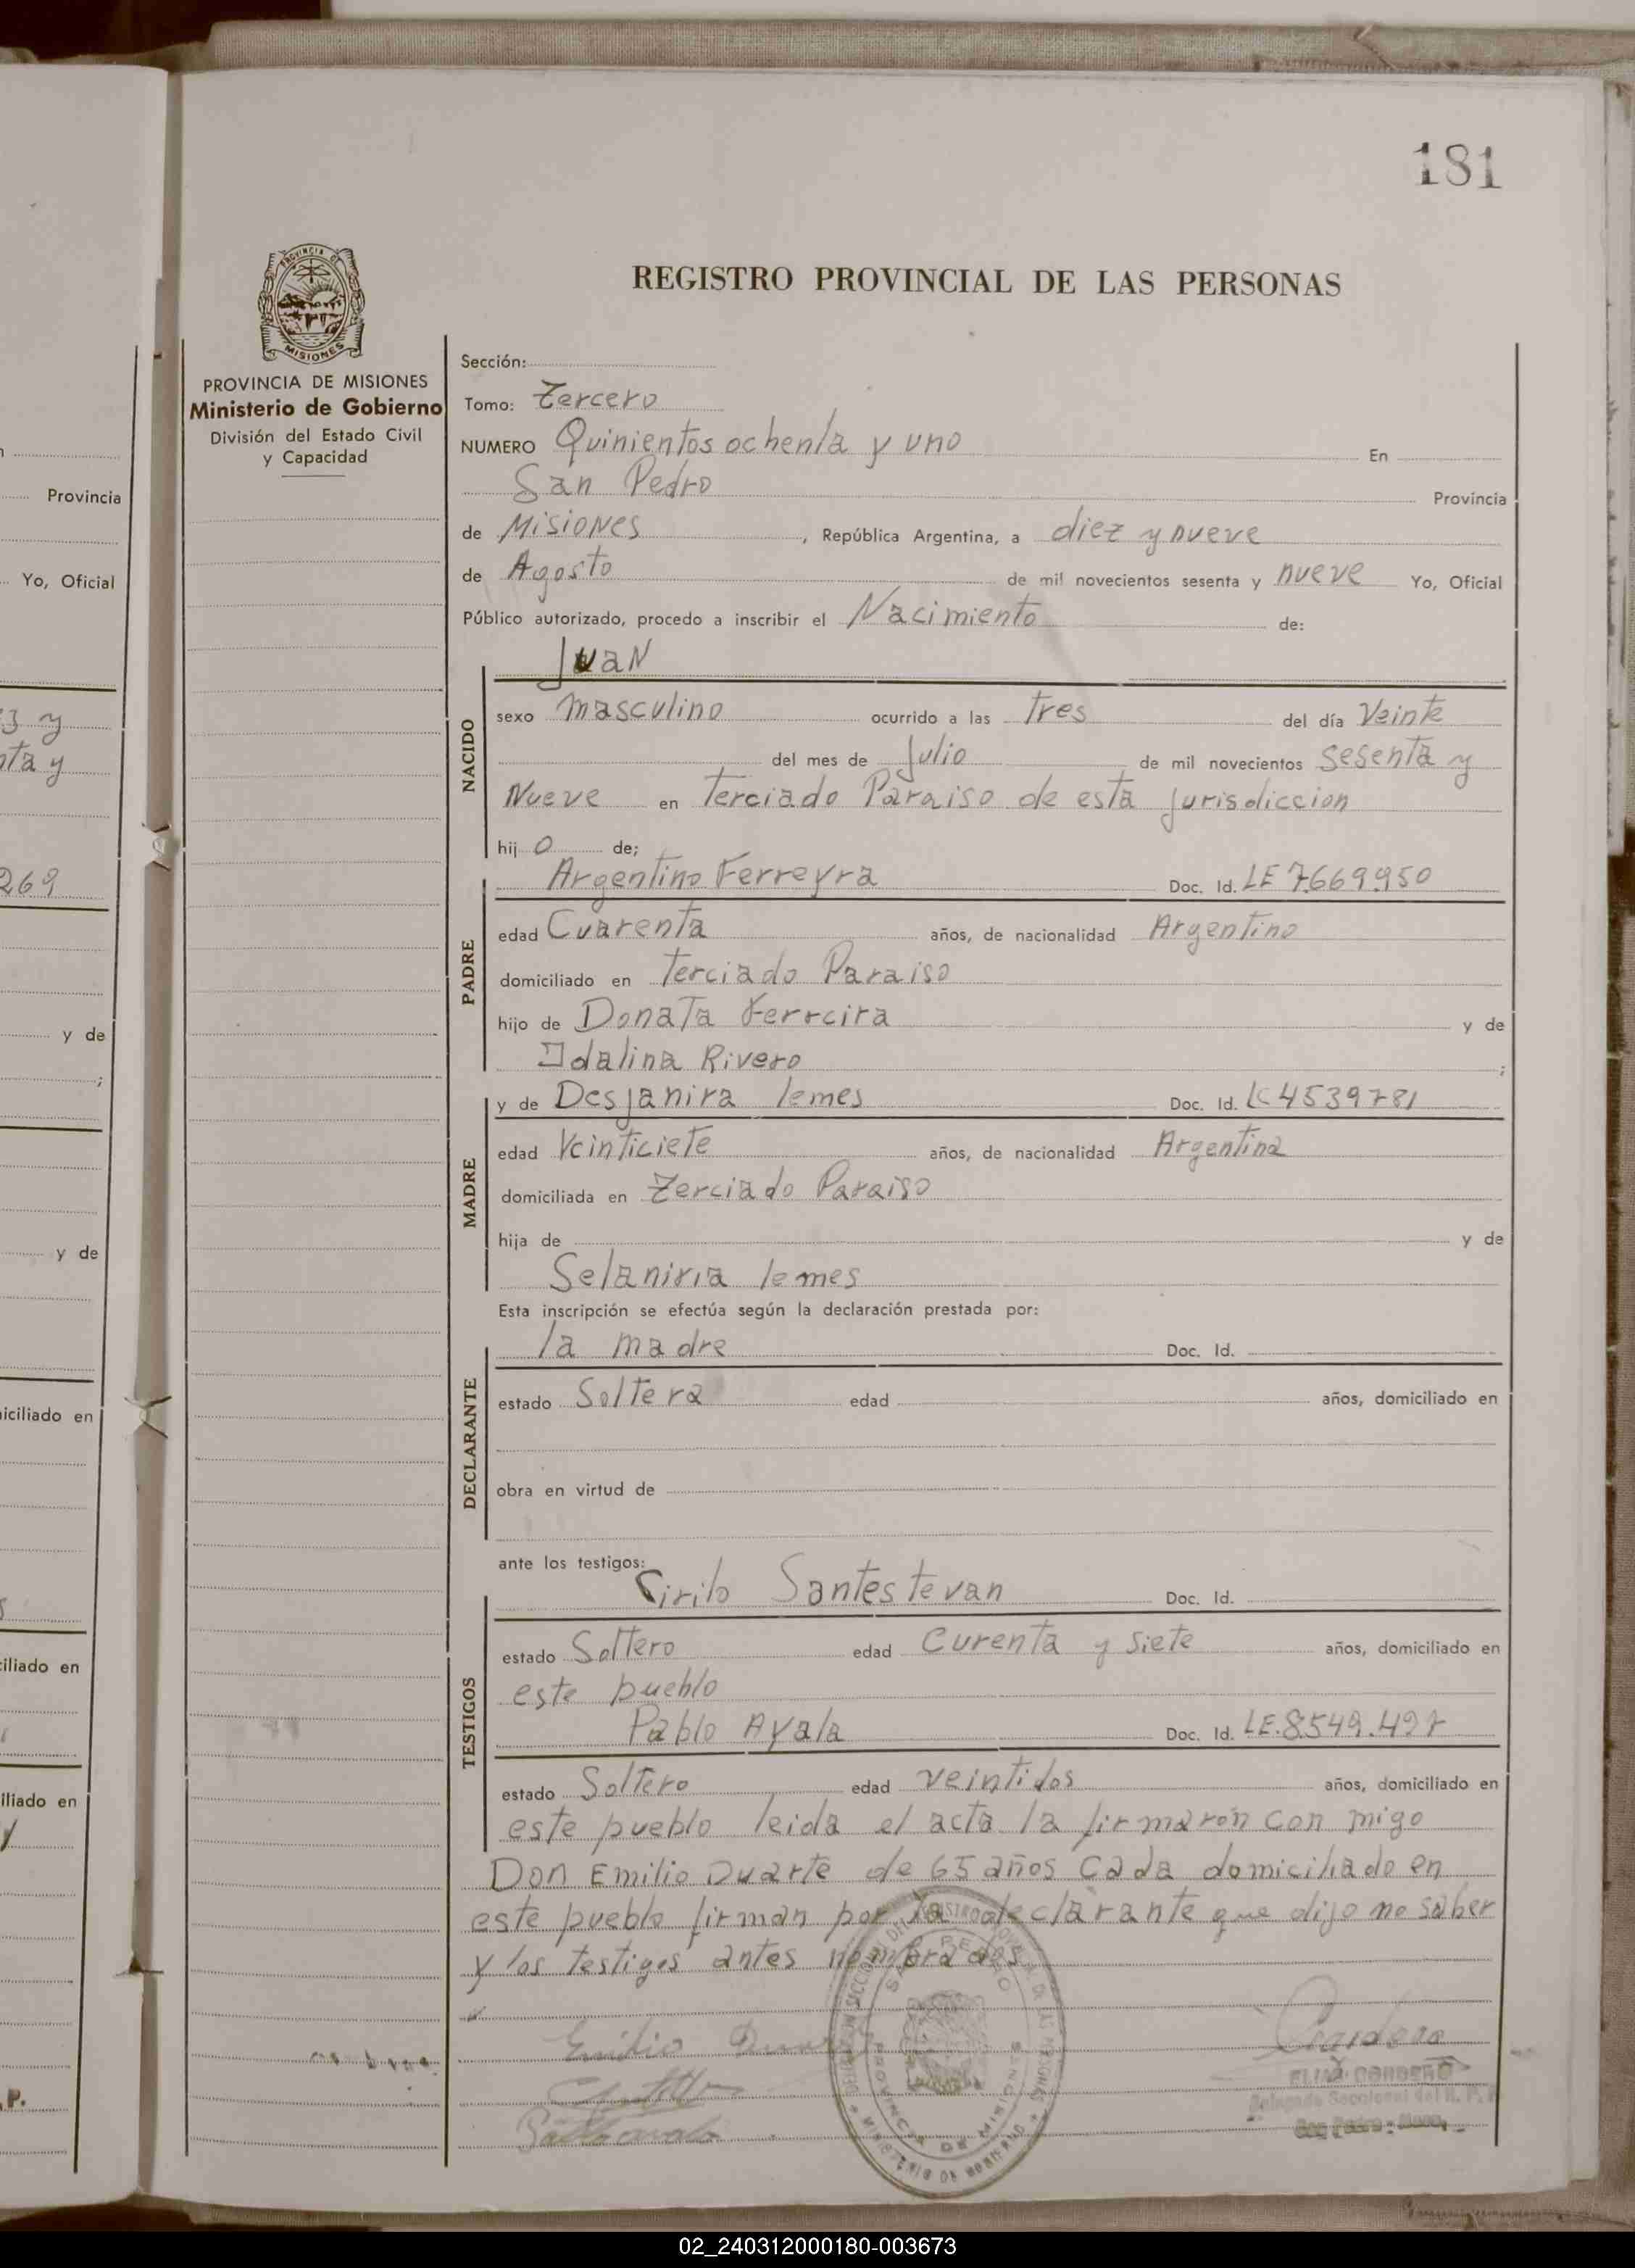 181
REGISTRO PROVINCIAL DE LAS PERSONAS
PROVINCIA DE MISIONES
Ministerio de Gobierno
División del Estado Civil
y Capacidad
Sección:
Tomo: Tercero
NUMERO Quinientos ochenta y uno En
San Pedro Provincia
de Misiones, República Argentina, a diez y nueve
de Agosto de mil novecientos sesenta y nueve Yo, Oficial
Público autorizado, procedo a inscribir el Nacimiento de:
Juan
NACIDO
sexo masculino ocurrido a las Tres del día Veinte
del mes de Julio de mil novecientos sesenta y
Nueve en Terciado Paraiso de esta jurisdiccion
hijo de;
Argentino Ferreyra Doc. Id. LE 7.669.950
PADRE
edad Cuarenta años, de nacionalidad Argentino
domiciliado en Terciado Paraiso
hijo de Donata Ferreira y de
Idalina Rivero ;
y de Desjanira lemes Doc. Id. LC 4539781
MADRE
edad Veinticiete años, de nacionalidad Argentina
domiciliada en Terciado Paraiso
hija de y de
Selaniria lemes
Esta inscripción se efectúa según la declaración prestada por:
la madre Doc. Id.
DECLARANTE
estado Soltera edad años, domiciliado en
obra en virtud de
ante los testigos:
Cirilo Santestevan Doc. Id.
TESTIGOS
estado Soltero edad Curenta y siete años, domiciliado en
este pueblo
Pablo Ayala Doc. Id. LE.8.549.497
estado Soltero edad veintidos años, domiciliado en
este pueblo leida el acta la firmarón con migo
Don Emilio Duarte de 65 años Cada domiciliado en
este pueblo firman por la declarante que dijo no saber
y los testigos antes nombrados
Emilio Duarte
SAN PEDRO
PROVINCIA DE MISIONES
San Pedro - Mnes.
Provincia
Yo, Oficial
y de
y de
iciliado en
iliado en
iliado en
02_240312000180-003673